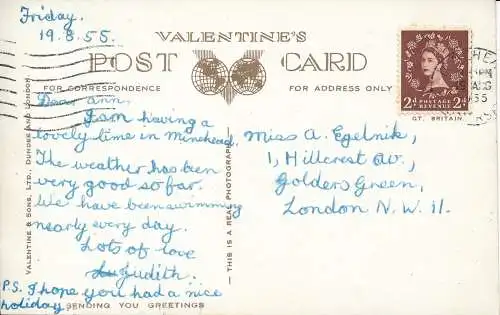 Friday.
19.8.55.
VALENTINE'S
POST CARD
FOR CORRESPONDENCE
FOR ADDRESS ONLY
Dear ann,
I am having a
lovely time in Minehead.
The weather has been
very good so far.
We have been swimming
nearly every day.
Lots of love
Judith.
P.S. I hope you had a nice
holiday.
SENDING YOU GREETINGS
VALENTINE & SONS, LTD., DUNDEE AND LONDON
— THIS IS A REAL PHOTOGRAPH —
Miss A. Egelnik,
1, Hillcrest Av.,
Golders Green,
London N.W. 11.
2D POSTAGE REVENUE 2D
GT. BRITAIN
PM
AUG
55